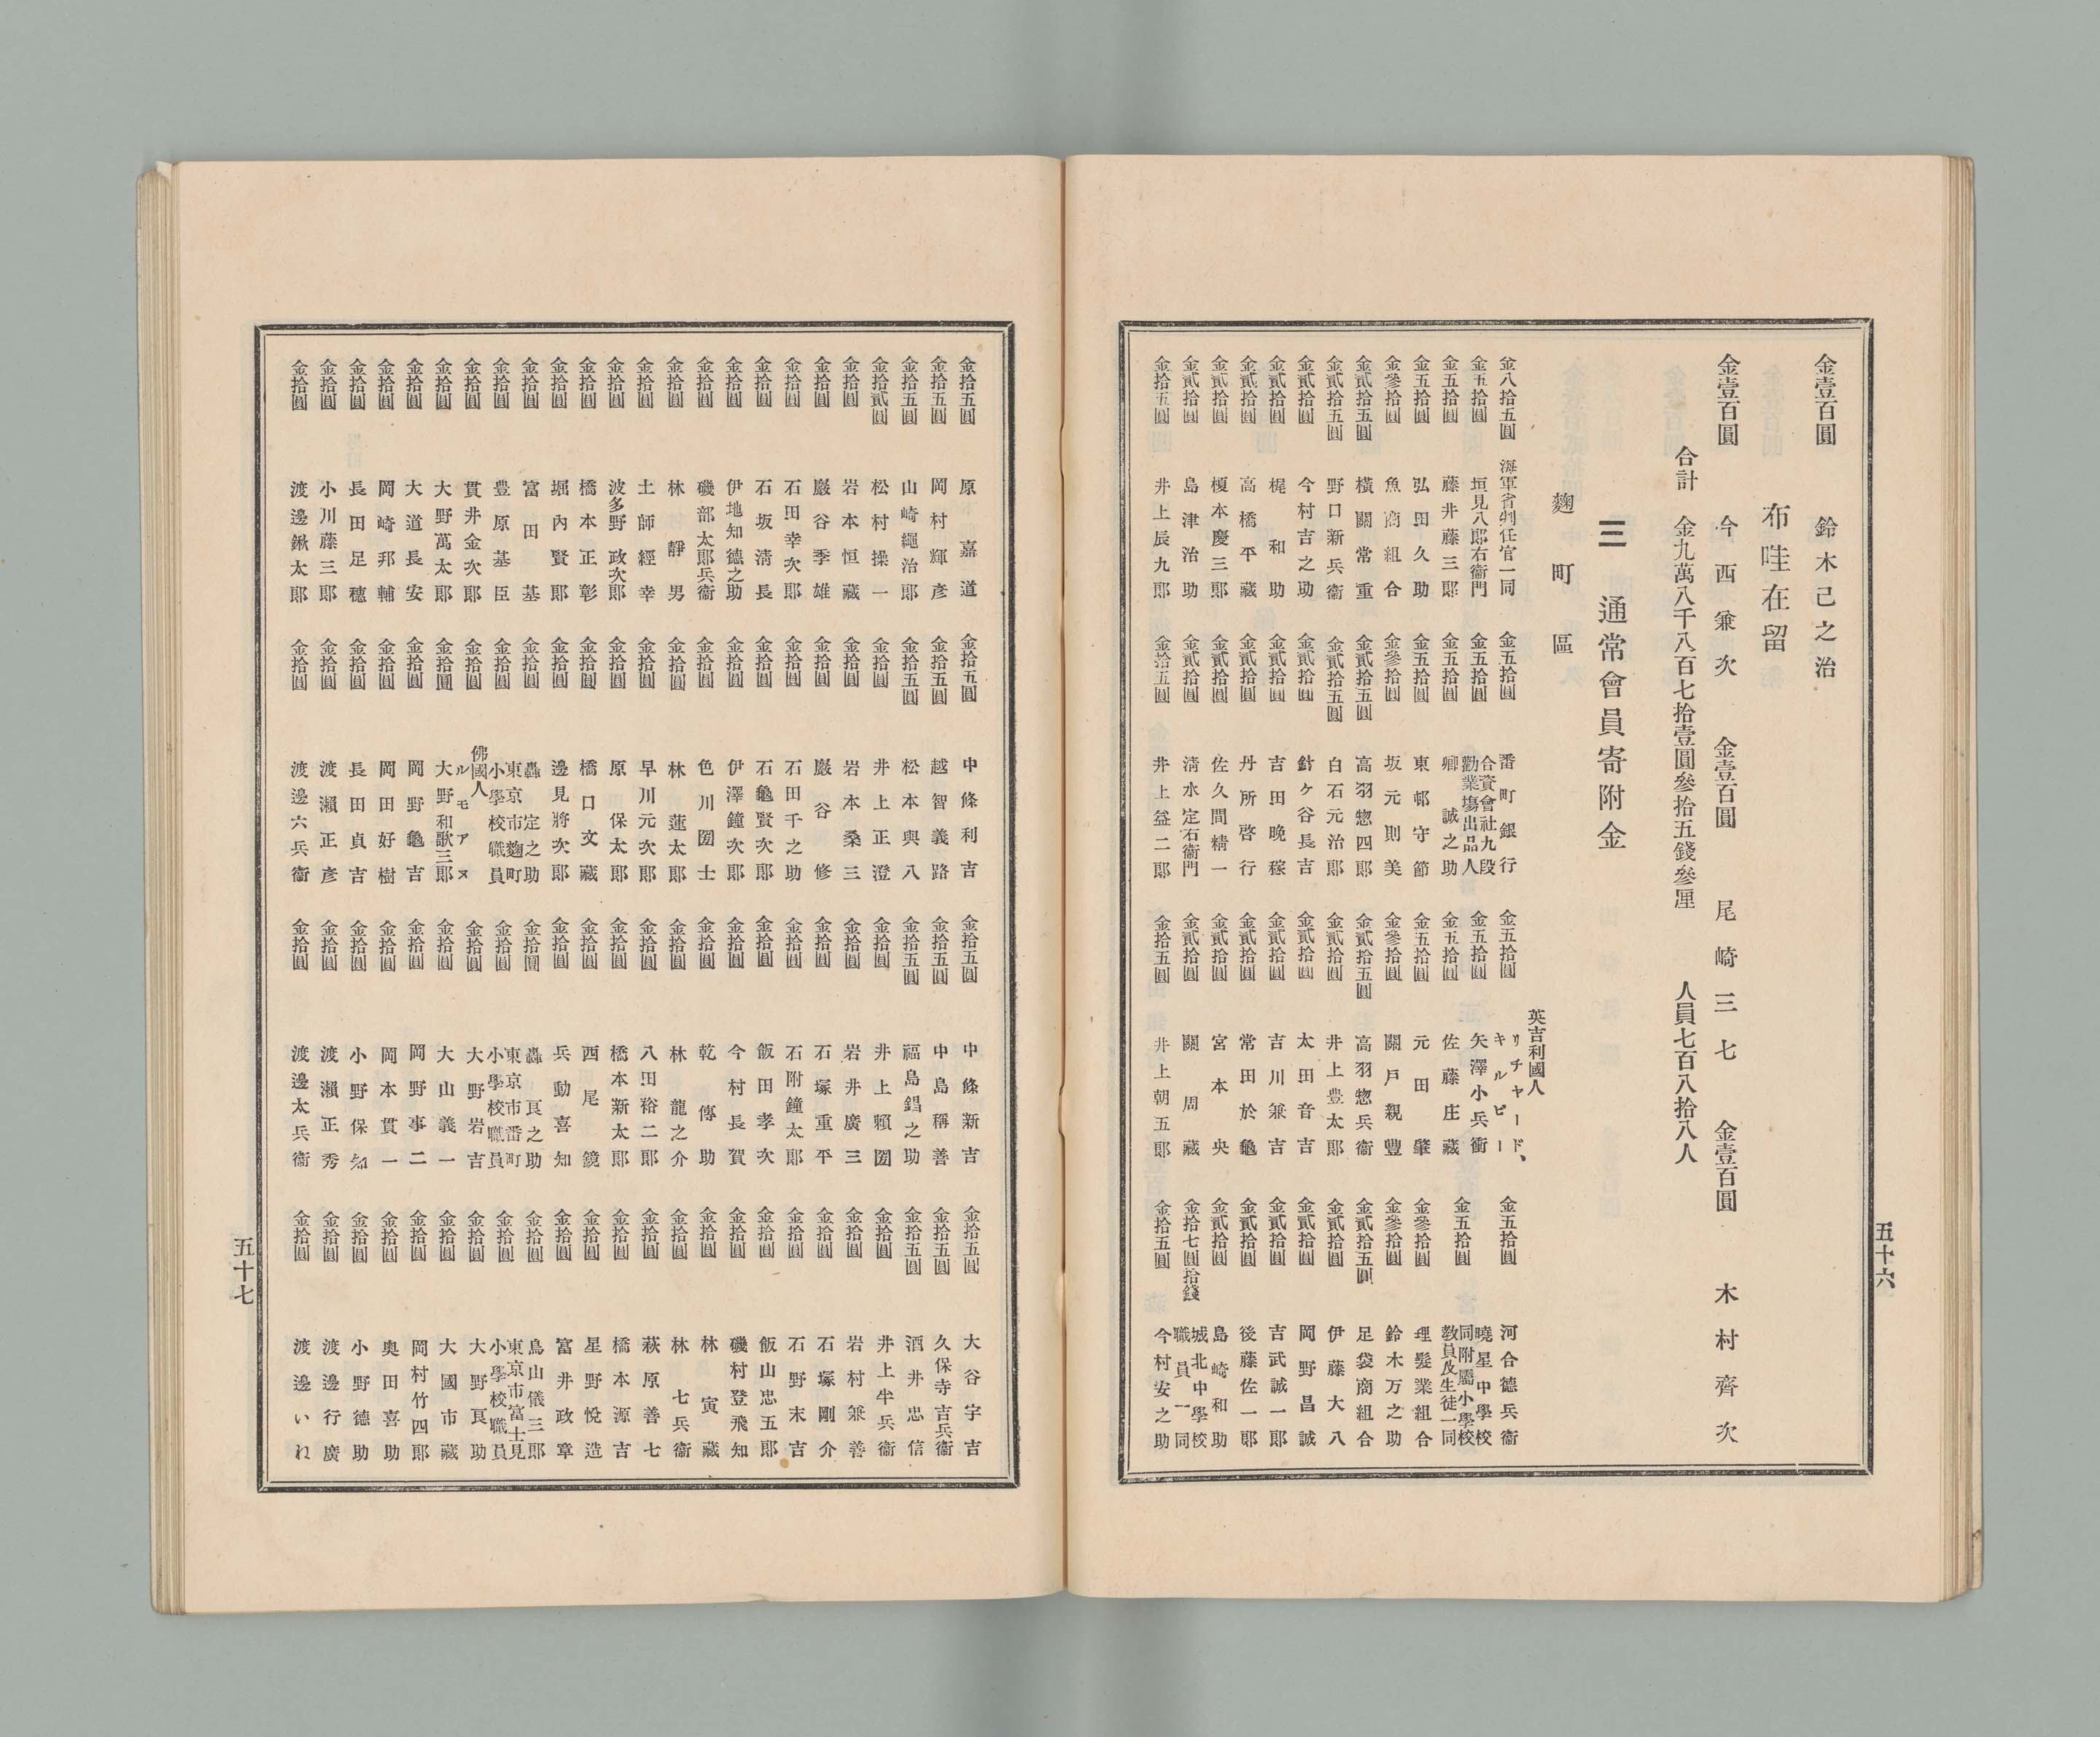 五十六
金壹百圓 鈴木己之治
布哇在留
金壹百圓 今西兼次 金壹百圓 尾崎三七 金壹百圓 木村齊次
合計 金九萬八千八百七拾壹圓參拾五錢參厘 人員七百八拾八人
三 通常會員寄附金
麴町區
金八拾五圓 海軍省判任官一同 金五拾圓 番町銀行 金五拾圓 英吉利國人 リチヤード、キルビー 金五拾圓 河合德兵衞
金五拾圓 垣見八郎右衞門 金五拾圓 合資會社九段勸業塲出品人 金五拾圓 矢澤小兵衞 金五拾圓 曉星中學校同附屬小學校敎員及生徒一同
金五拾圓 藤井藤三郎 金五拾圓 卿誠之助 金五拾圓 佐藤庄藏
金五拾圓 弘田久助 金五拾圓 東邨守節 金五拾圓 元田肇 金參拾圓 理髮業組合
金參拾圓 魚商組合 金參拾圓 坂元則美 金參拾圓 關戶親豐 金參拾圓 鈴木万之助
金貳拾五圓 橫關常重 金貳拾五圓 高羽惣四郎 金貳拾五圓 高羽惣兵衞 金貳拾五圓 足袋商組合
金貳拾五圓 野口新兵衞 金貳拾五圓 白石元治郎 金貳拾圓 井上豊太郎 金貳拾圓 伊藤大八
金貳拾圓 今村吉之助 金貳拾圓 針ケ谷長吉 金貳拾圓 太田音吉 金貳拾圓 岡野昌誠
金貳拾圓 梶和助 金貳拾圓 吉田晚稼 金貳拾圓 吉川兼吉 金貳拾圓 吉武誠一郎
金貳拾圓 高橋平藏 金貳拾圓 丹所啓行 金貳拾圓 常田於龜 金貳拾圓 後藤佐一郎
金貳拾圓 榎本慶三郎 金貳拾圓 佐久間精一 金貳拾圓 宮本央 金貳拾圓 島崎和助
金貳拾圓 島津治助 金貳拾圓 淸水定右衞門 金貳拾圓 關周藏 金拾七圓拾錢 城北中學校職員一同
金拾五圓 井上辰九郎 金拾五圓 井上益二郎 金拾五圓 井上朝五郎 金拾五圓 今村安之助
金拾五圓 原嘉道 金拾五圓 中條利吉 金拾五圓 中條新吉 金拾五圓 大谷宇吉
金拾五圓 岡村輝彦 金拾五圓 越智義路 金拾五圓 中島稱善 金拾五圓 久保寺吉兵衞
金拾五圓 山崎繩治郎 金拾五圓 松本與八 金拾五圓 福島錩之助 金拾五圓 酒井忠信
金拾貳圓 松村操一 金拾圓 井上正澄 金拾圓 井上賴圀 金拾圓 井上半兵衞
金拾圓 岩本恒藏 金拾圓 岩本桑三 金拾圓 岩井廣三 金拾圓 岩村兼善
金拾圓 巖谷季雄 金拾圓 巖谷修 金拾圓 石塚重平 金拾圓 石塚剛介
金拾圓 石田幸次郎 金拾圓 石田千之助 金拾圓 石附鐘太郎 金拾圓 石野末吉
金拾圓 石坂淸長 金拾圓 石龜賢次郎 金拾圓 飯田孝次 金拾圓 飯山忠五郎
金拾圓 伊地知德之助 金拾圓 伊澤鐘次郎 金拾圓 今村長賀 金拾圓 磯村登飛知
金拾圓 磯部太郎兵衞 金拾圓 色川圀士 金拾圓 乾傳助 金拾圓 林寅藏
金拾圓 林靜男 金拾圓 林蓮太郎 金拾圓 林龍之介 金拾圓 林七兵衞
金拾圓 土師經幸 金拾圓 早川元次郎 金拾圓 八田裕二郎 金拾圓 萩原善七
金拾圓 波多野政次郎 金拾圓 原保太郎 金拾圓 橋本新太郎 金拾圓 橋本源吉
金拾圓 橋本正彰 金拾圓 橋口文藏 金拾圓 西尾鏡 金拾圓 星野悅造
金拾圓 堀內賢郎 金拾圓 邊見將次郎 金拾圓 兵動喜知 金拾圓 富井政章
金拾圓 富田基 金拾圓 轟定之助 金拾圓 轟良之助 金拾圓 鳥山儀三郎
金拾圓 豊原基臣 金拾圓 東京市麴町小學校職員 金拾圓 東京市番町小學校職員 金拾圓 東京市富士見小學校職員
金拾圓 貫井金次郎 金拾圓 佛國人 ルモアヌ 金拾圓 大野岩吉 金拾圓 大野良助
金拾圓 大野萬太郎 金拾圓 大野和歌三郎 金拾圓 大山義一 金拾圓 大國市藏
金拾圓 大道長安 金拾圓 岡野龜吉 金拾圓 岡野事二 金拾圓 岡村竹四郎
金拾圓 岡崎邦輔 金拾圓 岡田好樹 金拾圓 岡本貫一 金拾圓 奥田喜助
金拾圓 長田足穗 金拾圓 長田貞吉 金拾圓 小野保知 金拾圓 小野德助
金拾圓 小川藤三郎 金拾圓 渡瀨正彦 金拾圓 渡瀨正秀 金拾圓 渡邊行廣
金拾圓 渡邊鍬太郎 金拾圓 渡邊六兵衞 金拾圓 渡邊太兵衞 金拾圓 渡邊いね
五十七